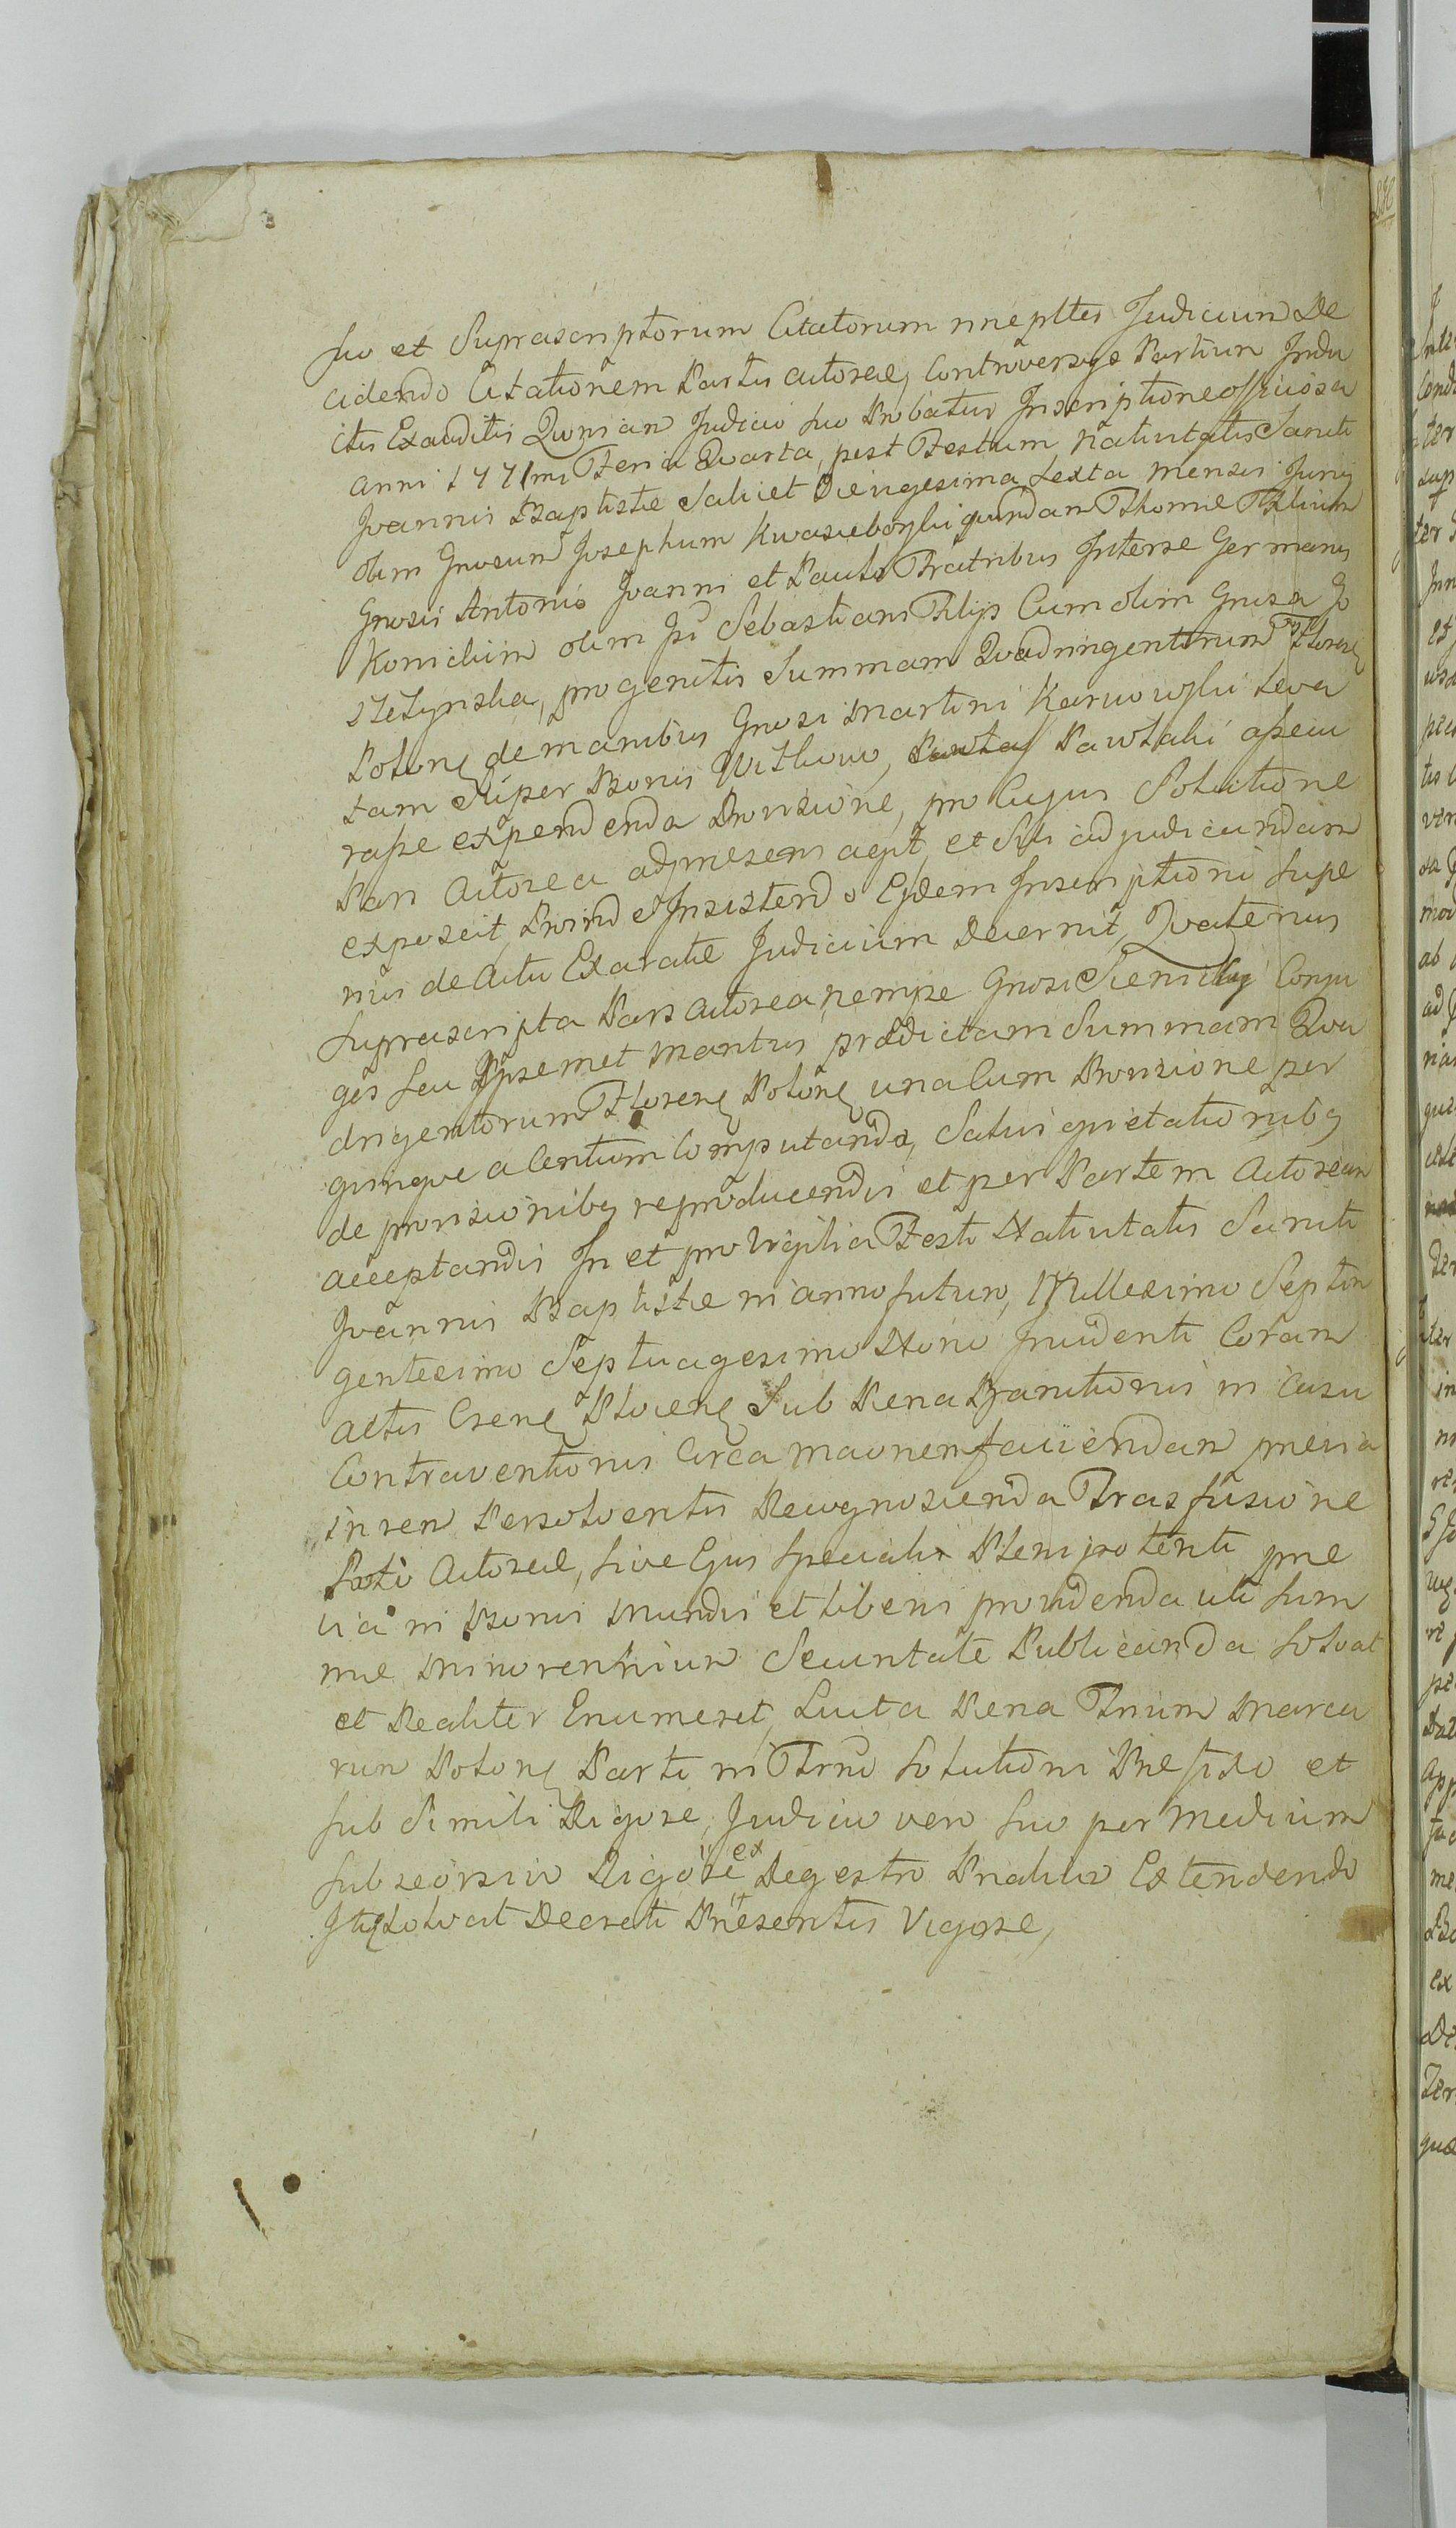 suo et Suprascriptorum Citatorum nne pltes Judicium De
cidendo Citationem Partis actoreæ, Controversys Partium Indu
ctis Exauditis Quoniam Judicio suo Probatur Inscriptione officiosa
anni 1771mi Feria Quarta, post Festum Nativitatis Sancti
Joannis Baptistæ Salicet Die vigesima Sexta mensis Juny
olim Gnosum Josephum Kwasieborski quondam Thomæ Filium
Gnosis Antonio Joanni et Paulo Fratribus Interse Germanis
Konickim olim Sebastiani Filys Cum olim Gnosa Jo
progenitis Summam Quadringentorum Floreng
Polong de manibus Gnosi Martini Karwowski Leva
tam Super Bonis Witkowo, Pawłaki assecu
rasse expendenda Provisione, pro Cujus Solutione
Pars Actorea ad præsens agit, et Sibi adjudicandam
exposcit, Proinde Insistendo Ejdem Inscriptioni supe
rius de Actu Exaratæ Judicium Decernit, Quatenus
suprascripta Pars actorea, nempe Gnosi Conju
ges seu Ipsemet Maritus prædictam Summam Qua
dringentorum Floreng Polong unacum Provisione per
quinque a Centum Computanda, Salvis quietationibg
de provisionibg reproducendis et per Partem Actoream
acceptandis In et pro Vigilia Festi Nativitatis Sancti
Joannis Baptistæ in anno futuro, Millesimo Septin
gentesimo Septuagesimo Nono Incidenti Coram
actis Sub Pena Bannitionis in Casu
Contraventionis Circa faciendam previa
in rem Persolventis Recognoscienda Trasfusione
Parti Actoreæ, sive Ejus Speciali Plenipotenti præ
via in Bonis Mundis et liberis providenda uti Sum
mæ Minorennium Securitate Publicanda solvat
et Realiter Enumeret, Luita Pena Trium Marca
rum Polong Parti in Trno Solutioni Præfixo et
sub Simili Rigore, Judicio vero suo per Medium
sub seorsivo Rigore ex Regestro Extendendo
solvat Decreti Præsentis Vigore,